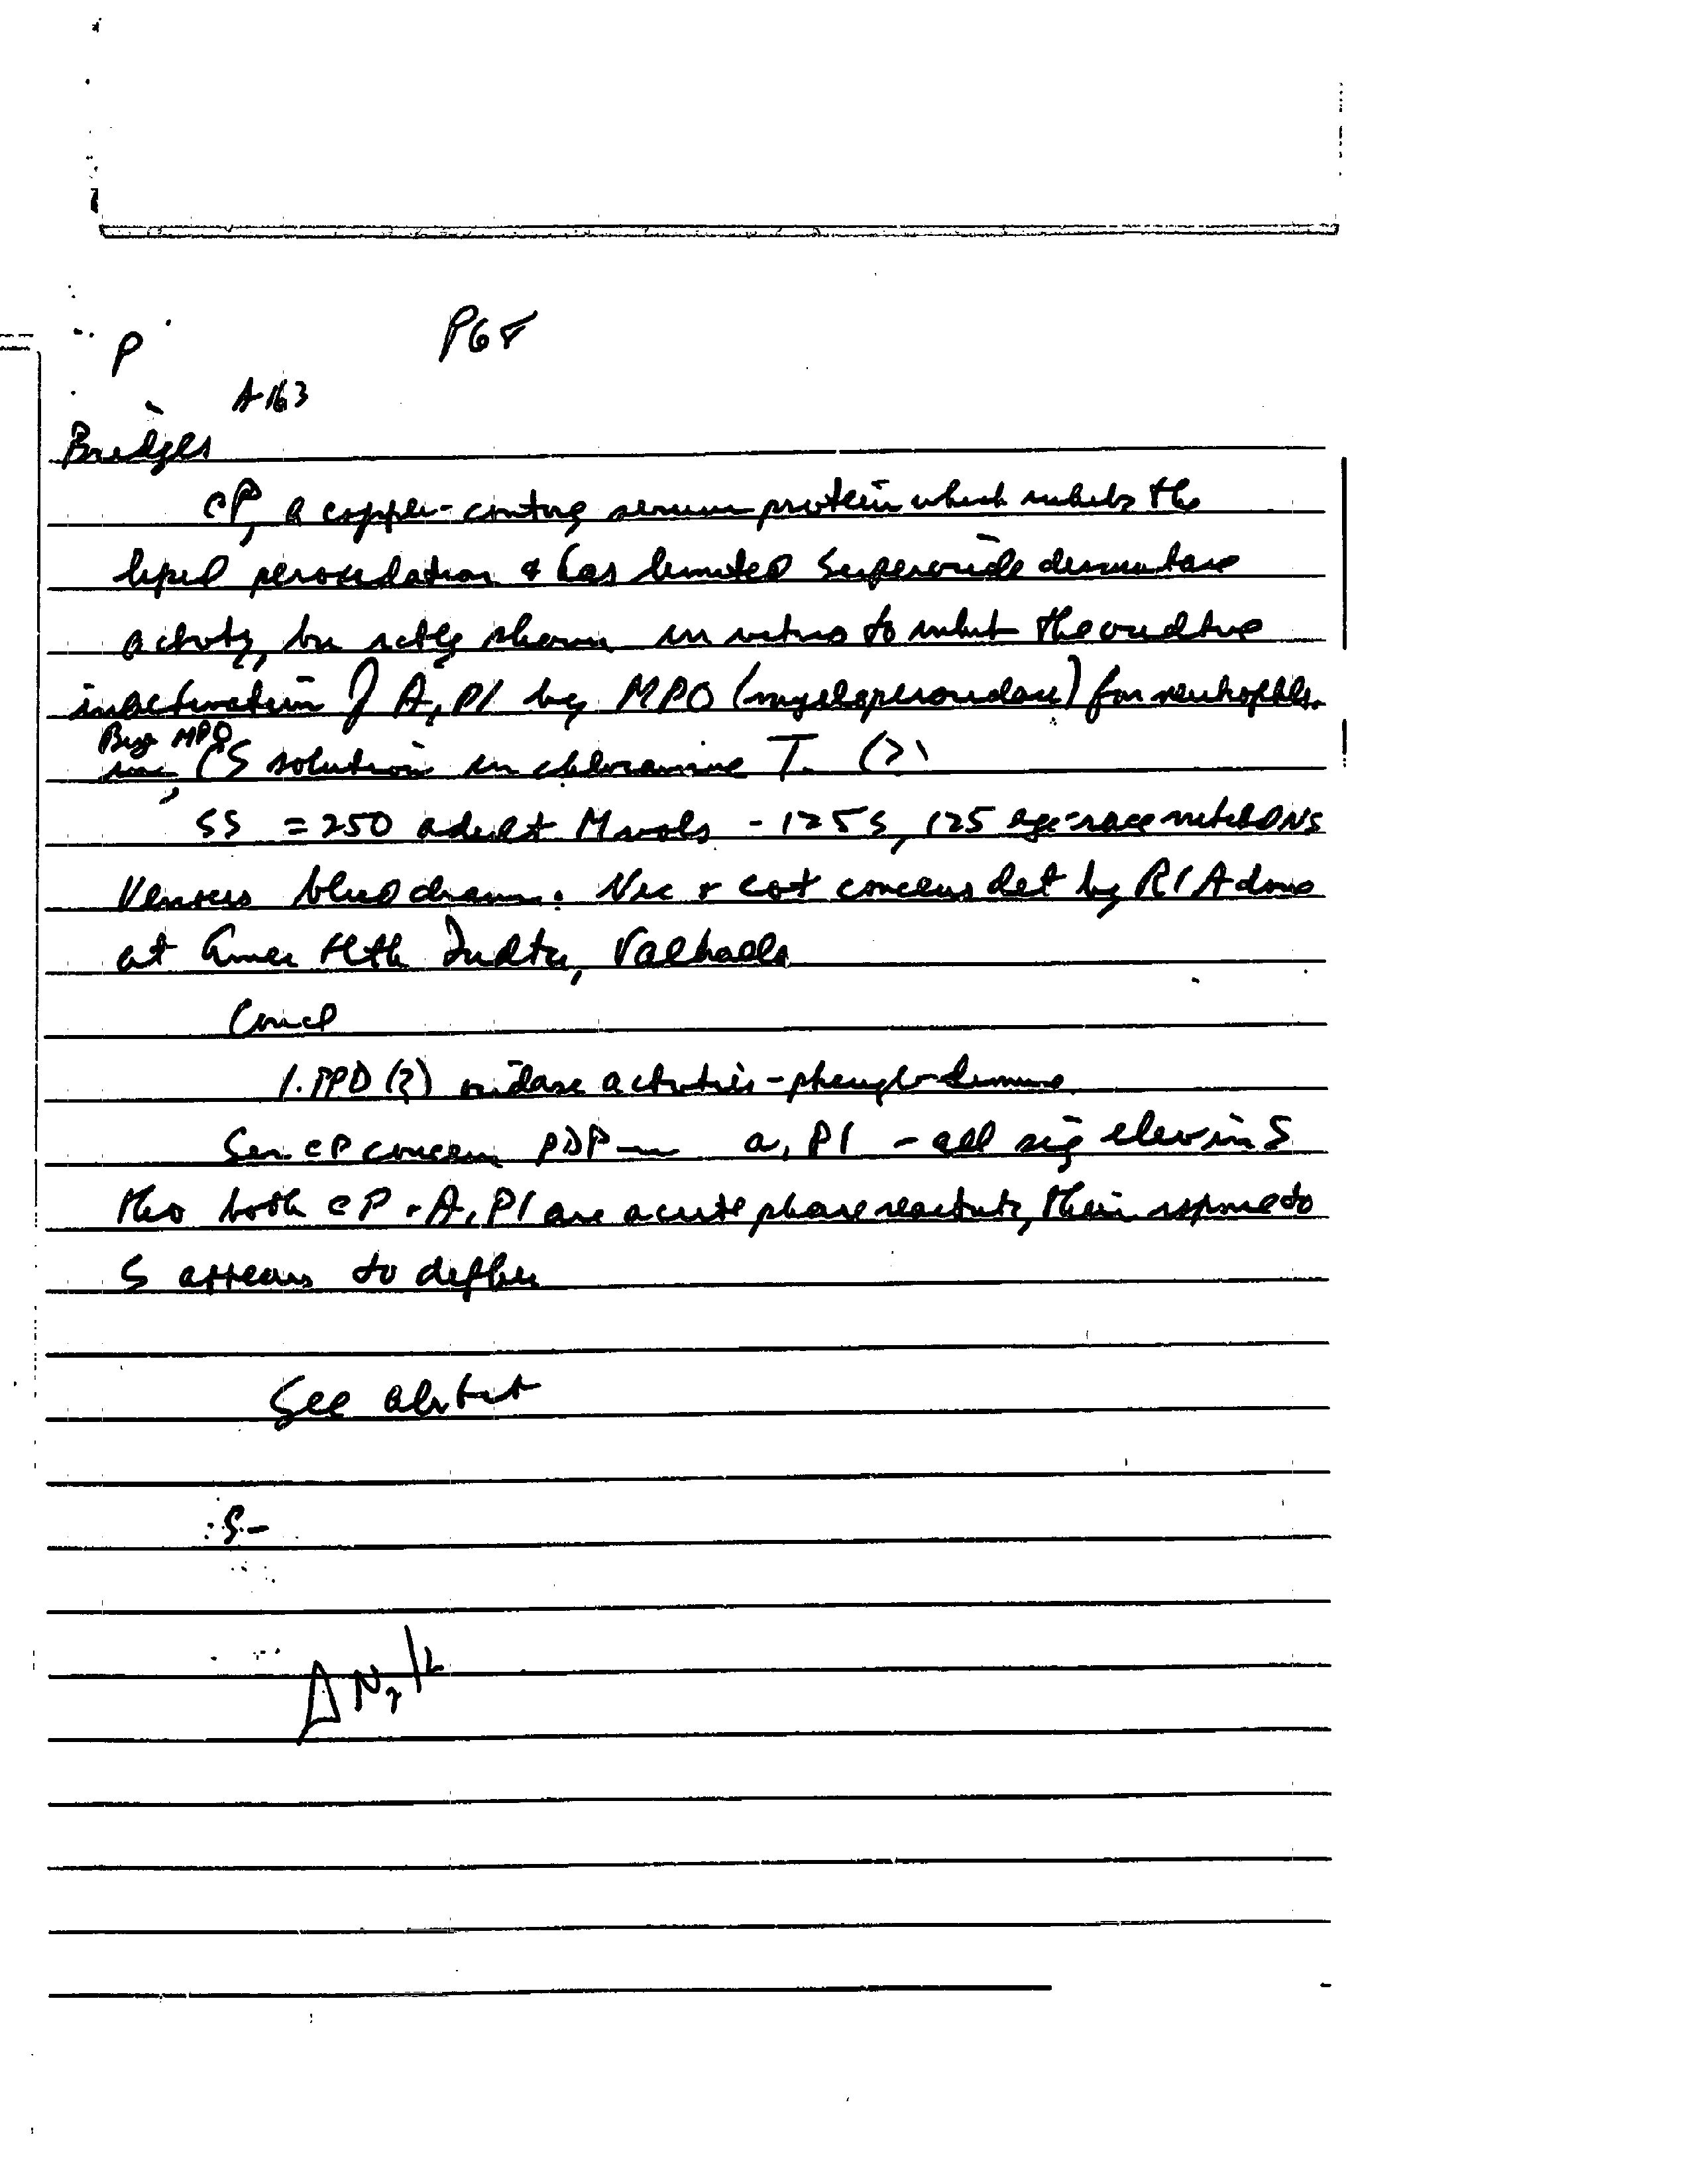 P P68
A163
Bridges
CP, a copper-contng serum protein which inhibts the
lipid peroxidation & has limited superoxide dismutase
activty, in vitro to inhibt the oxidtive
inactivation of A, PI by MPO (myeloperoxidase) for neutrophils.
MPO
CS solution in chloramine T. (?)
SS = 250 adult M vols - 125 S, 125 age-race mtchd NS
Venous blud drawn. Nic & cot concens det by RIA done
at Amer Hlth Fndtn, Valhalla
Concl
1. PPD (?) oxidase actvties - phenyl
Ser CP concen a, PI - all sig elev in S
tho both CP & A, PI are acute phase reactnts, their rspnse to
S appears to differ
See abstrct
S -